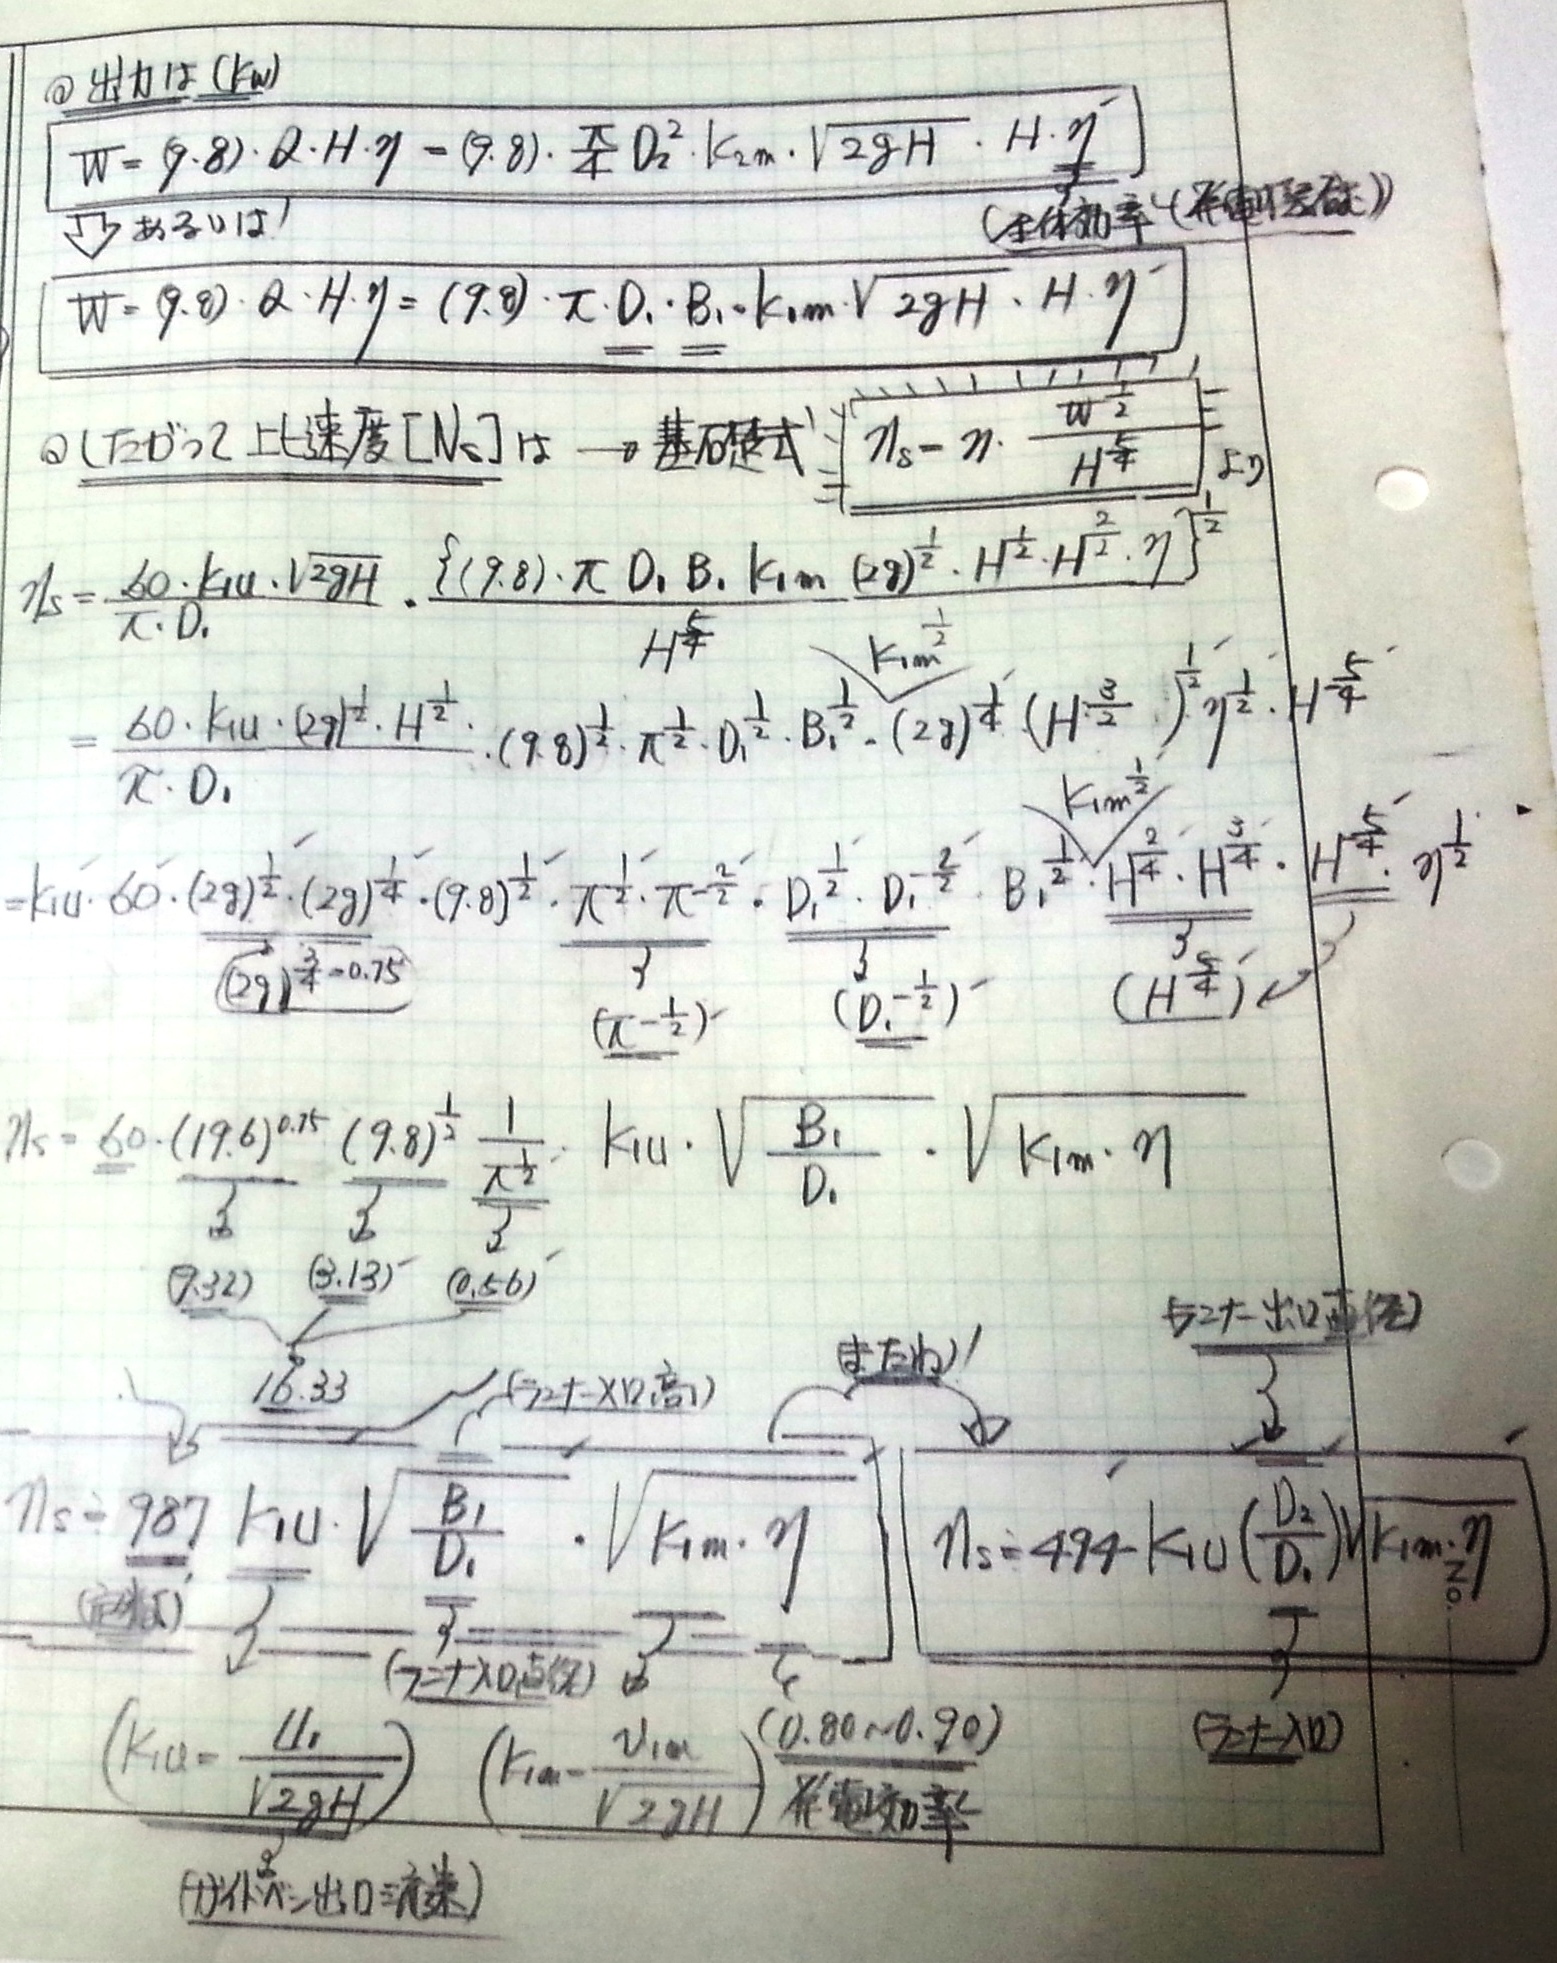 ◎ 出力は (Kw)
W = (9.8)・Q・H・η = (9.8)・π/4 D₂²・K₂m・√2gH・H・η
あるいは!
(全体効率
W = (9.8)・Q・H・η = (9.8)・π・D₁・B₁・K₁m・√2gH・H・η
◎ したがって比速度[Ns]は → 基礎式 ηs = η・W^1/2 / H^5/4 より
ηs = 60・K₁u・√2gH / π・D₁ ・ {(9.8)・π D₁ B₁ K₁m (2g)^1/2・H^1/2・H^2/2・η}^1/2 / H^5/4
K₁m^1/2
= 60・K₁u・(2g)^1/2・H^1/2・ / π・D₁ ・(9.8)^1/2・π^1/2・D₁^1/2・B₁^1/2・(2g)^1/4 (H^3/2)^1/2 η^1/2・H^-5/4
K₁m^1/2
= K₁u・60・(2g)^1/2・(2g)^1/4・(9.8)^1/2・π^1/2・π^-2/2・D₁^1/2・D₁^-2/2・B₁^1/2・H^2/4・H^3/4・H^-5/4・η^1/2
(2g)^3/4=0.75 (π^-1/2) (D₁^-1/2) (H^5/4)
ηs = 60・(19.6)^0.75 (9.8)^1/2 1/π^1/2・K₁u・√B₁/D₁・√K₁m・η
(9.32) (3.13) (0.56)
ランナー出口直径)
16.33 (ランナー入口高) またね)!
ηs ≒ 987 K₁u・√B₁/D₁・√K₁m・η ηs ≒ 494 K₁u (D₂/D₁)√K₁m・η
No.
(ランナー入口直径) (ランナー入口)
(K₁u = U₁/√2gH) (K₁m = V₁m/√2gH) (0.80~0.90)
発電効率
(ガイドベン出口流速)